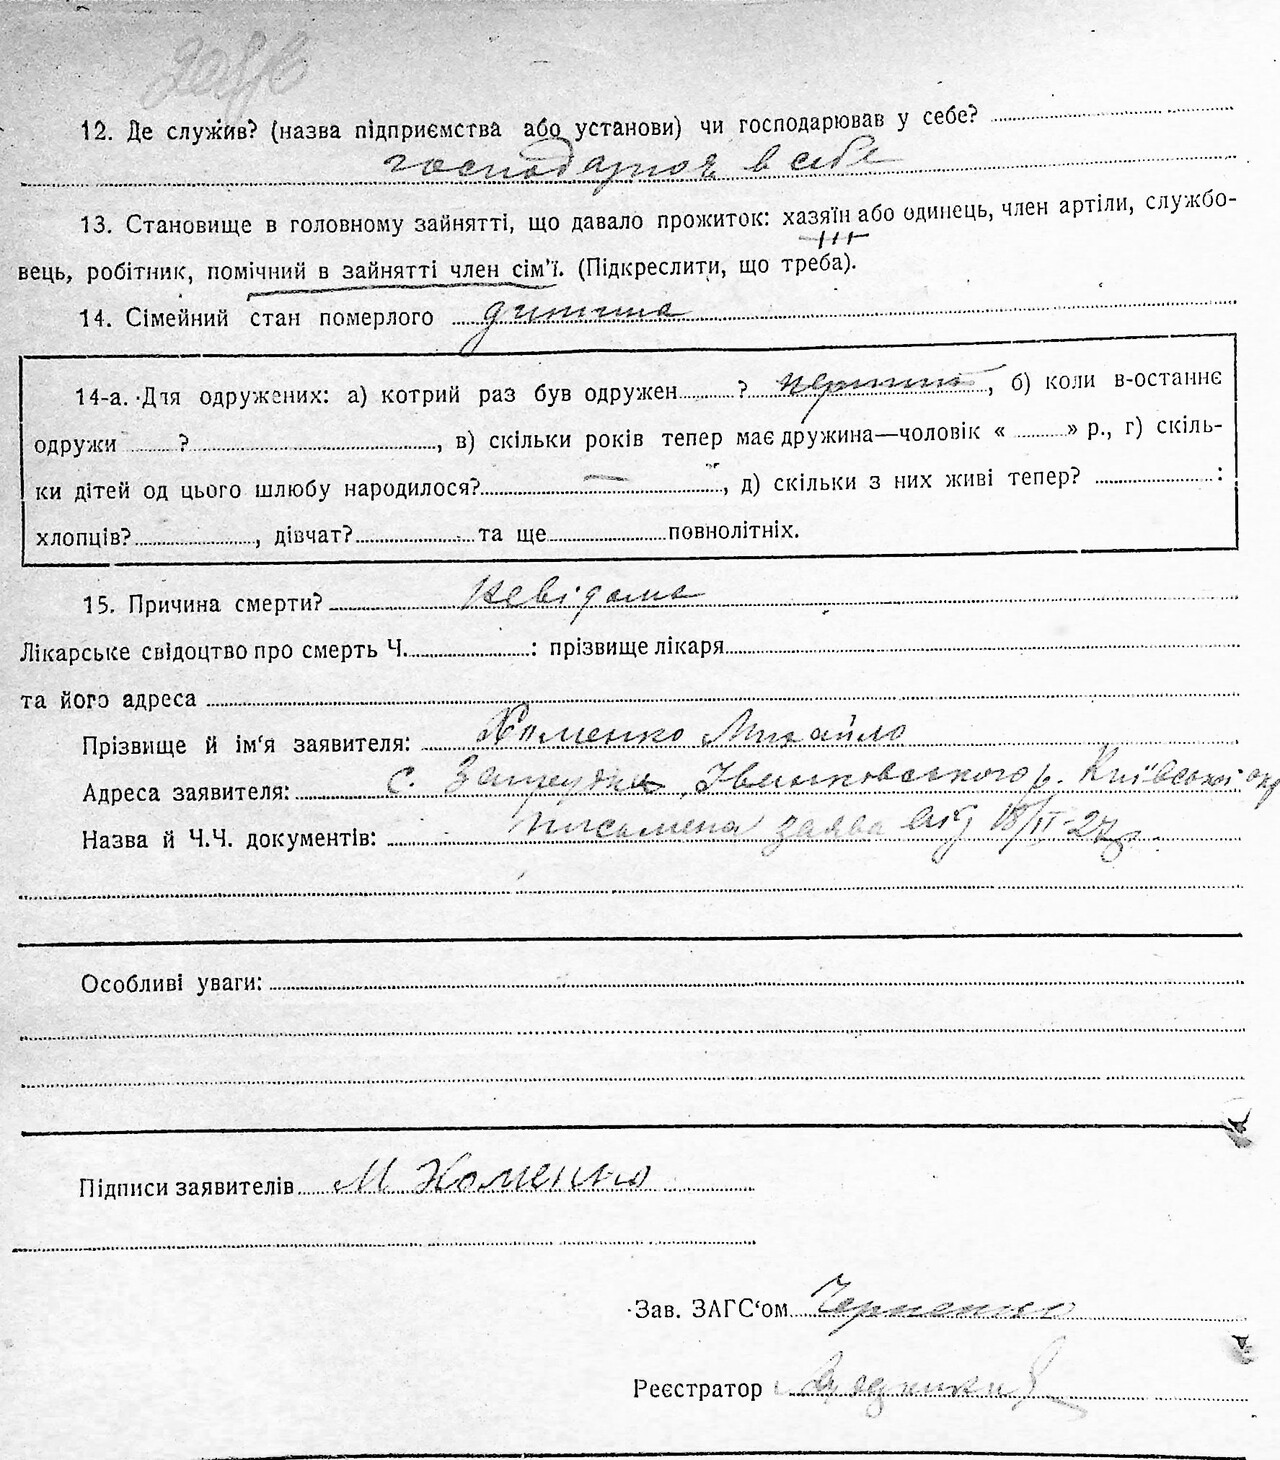 12. Де служив? (назва підприємства або установи) чи господарював у себе?
господарював в себе
13. Становище в головному зайнятті, що давало прожиток: хазяїн або одинець, член артіли, службо-
вець, робітник, помічний в зайнятті член сім'ї. (Підкреслити, що треба).
14. Сімейний стан померлого дитина
14-а. Для одружених: а) котрий раз був одружен ? , б) коли в-останнє
одружи ? , в) скільки років тепер має дружина—чоловік « » р., г) скіль-
ки дітей од цього шлюбу народилося? — , д) скільки з них живі тепер? :
хлопців? , дівчат? та ще повнолітніх.
15. Причина смерти? невідома
Лікарське свідоцтво про смерть Ч. : прізвище лікаря
та його адреса
Прізвище й ім'я заявителя: Хоменко Михайло
Адреса заявителя: с. Іванковського р. Київської окр
Назва й Ч.Ч. документів: письмена заява від 18/II-27р.
Особливі уваги:
Підписи заявителів М Хоменко
Зав. ЗАГС'ом Черненко
Реєстратор